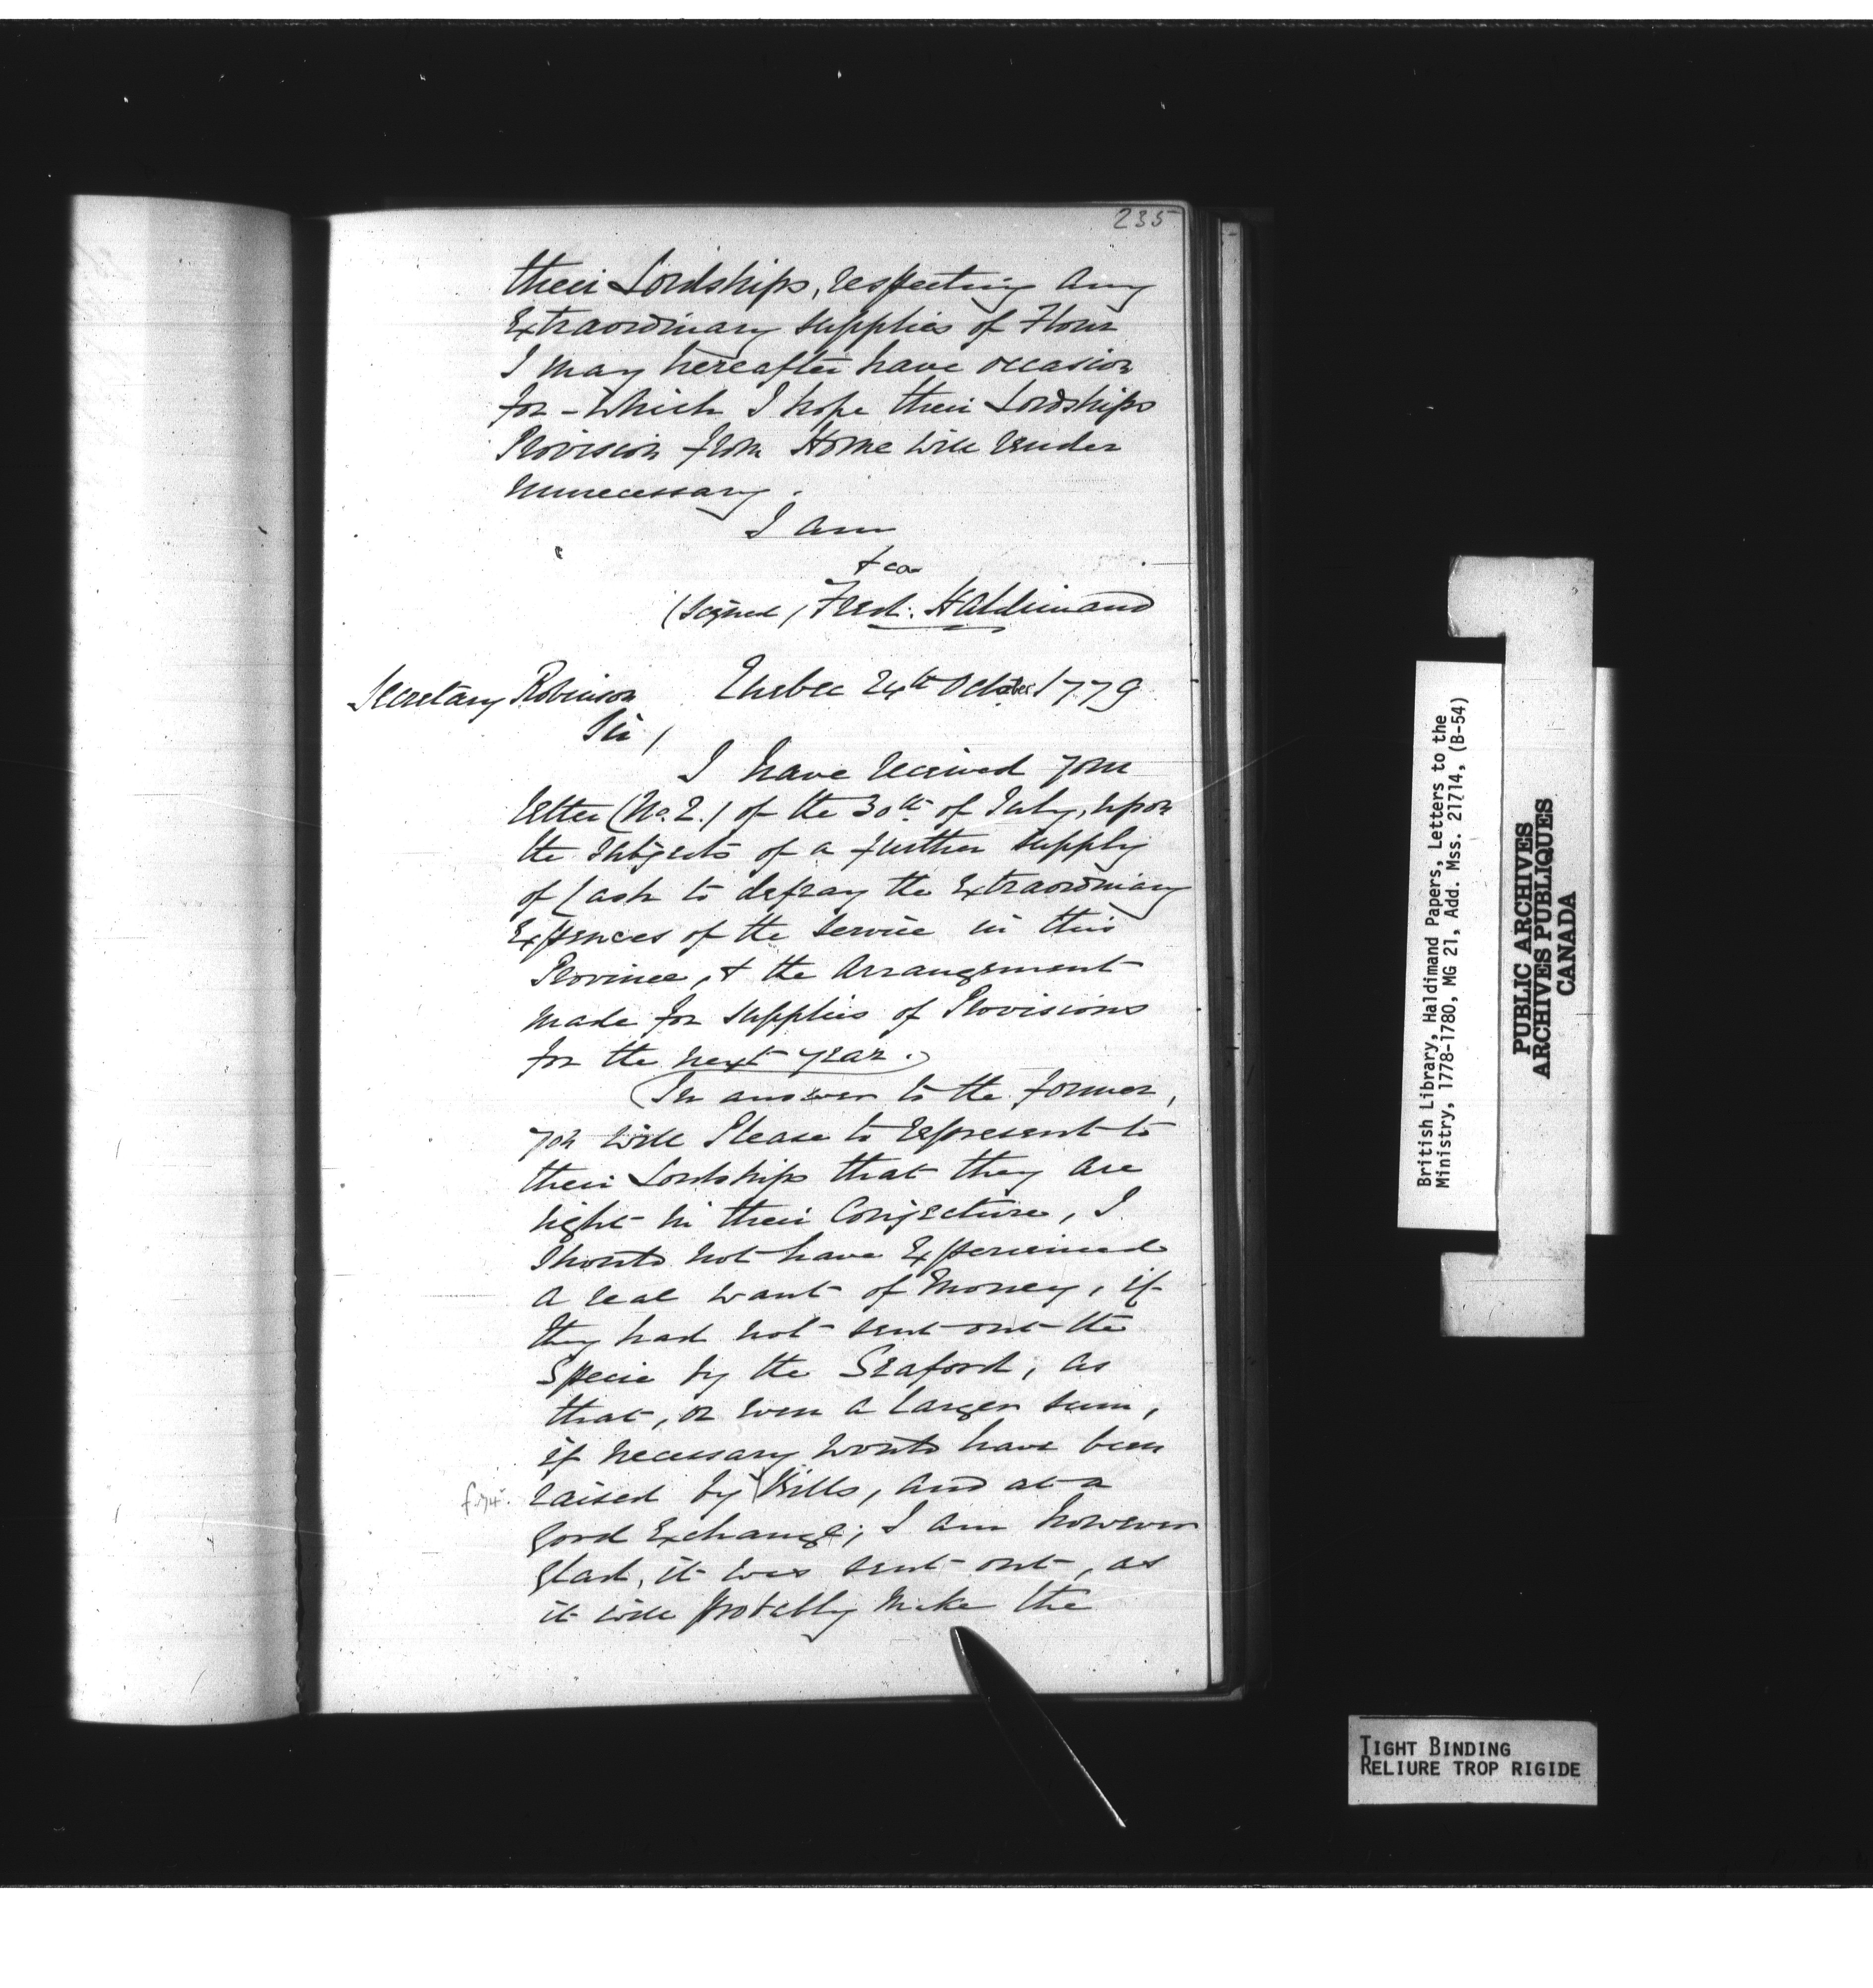 235
their Lordships, respecting any
Extraordinary supplies of Flour
I may hereafter have occasion
for - which I hope their Lordships
Provision from Home will render
unnecessary.
I am
&ca
(signed) Fred: Haldimand
Secretary Robinson Quebec 24th October 1779
Sir,
I have received your
letter (No. 2.) of the 30th of July, upon
the subjects of a further supply
of Cash to defray the Extraordinary
Expences of the Service in this
Province, & the Arrangement
made for supplies of Provisions
for the next year.
In answer to the former,
you will Please to represent to
their Lordships that they are
right in their Conjecture, I
should not have Experienced
a real want of Money, if
they had not sent out the
Specie by the Seaford, as
that, or even a larger sum,
if necessary would have been
f.74. raised by Bills, and at a
good Exchange; I am however
glad, it was sent out, as
it will probably make the
British Library, Haldimand Papers, Letters to the
Ministry, 1778-1780, MG 21, Add. Mss. 21714, (B-54)
PUBLIC ARCHIVES
ARCHIVES PUBLIQUES
CANADA
TIGHT BINDING
RELIURE TROP RIGIDE